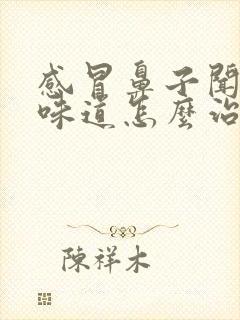 感冒鼻子聞
味道怎麼治
陳祥木